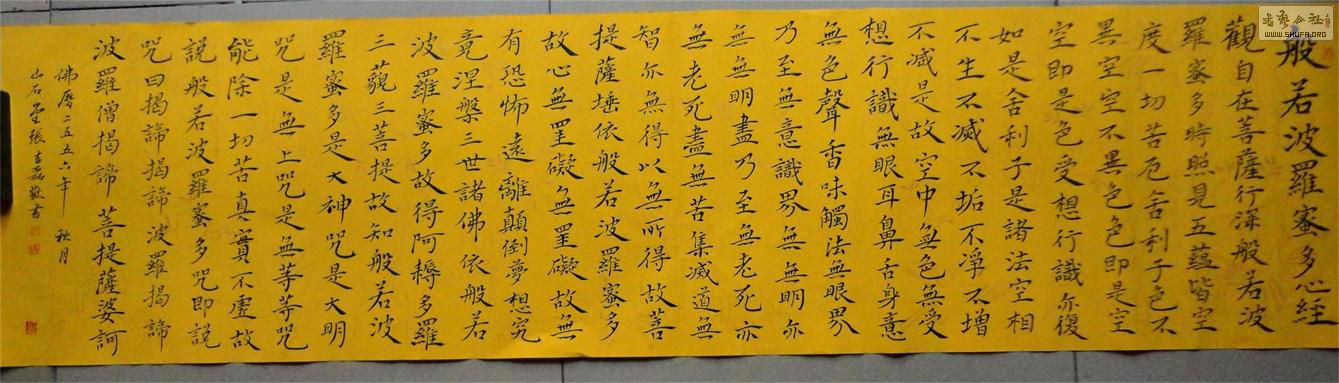 般若波羅蜜多心経
觀自在菩薩行深般若波
羅蜜多時照見五蘊皆空
度一切苦厄舍利子色不
異空空不異色色即是空
空即是色受想行識亦復
如是舍利子是諸法空相
不生不滅不垢不淨不增
不減是故空中無色無受
想行識無眼耳鼻舌身意
無色聲香味觸法無眼界
乃至無意識界無無明亦
無無明盡乃至無老死亦
無老死盡無苦集滅道無
智亦無得以無所得故菩
提薩埵依般若波羅蜜多
故心無罣礙無罣礙故無
有恐怖遠離顛倒夢想究
竟涅槃三世諸佛依般若
波羅蜜多故得阿耨多羅
三藐三菩提故知般若波
羅蜜多是大神咒是大明
咒是無上咒是無等等咒
能除一切苦真實不虛故
說般若波羅蜜多咒即說
咒曰揭諦揭諦波羅揭諦
波羅僧揭諦菩提薩婆訶
佛曆二五五六年秋月
山石堂張吉磊敬書
書藝公社
WWW.SHUFA.ORG